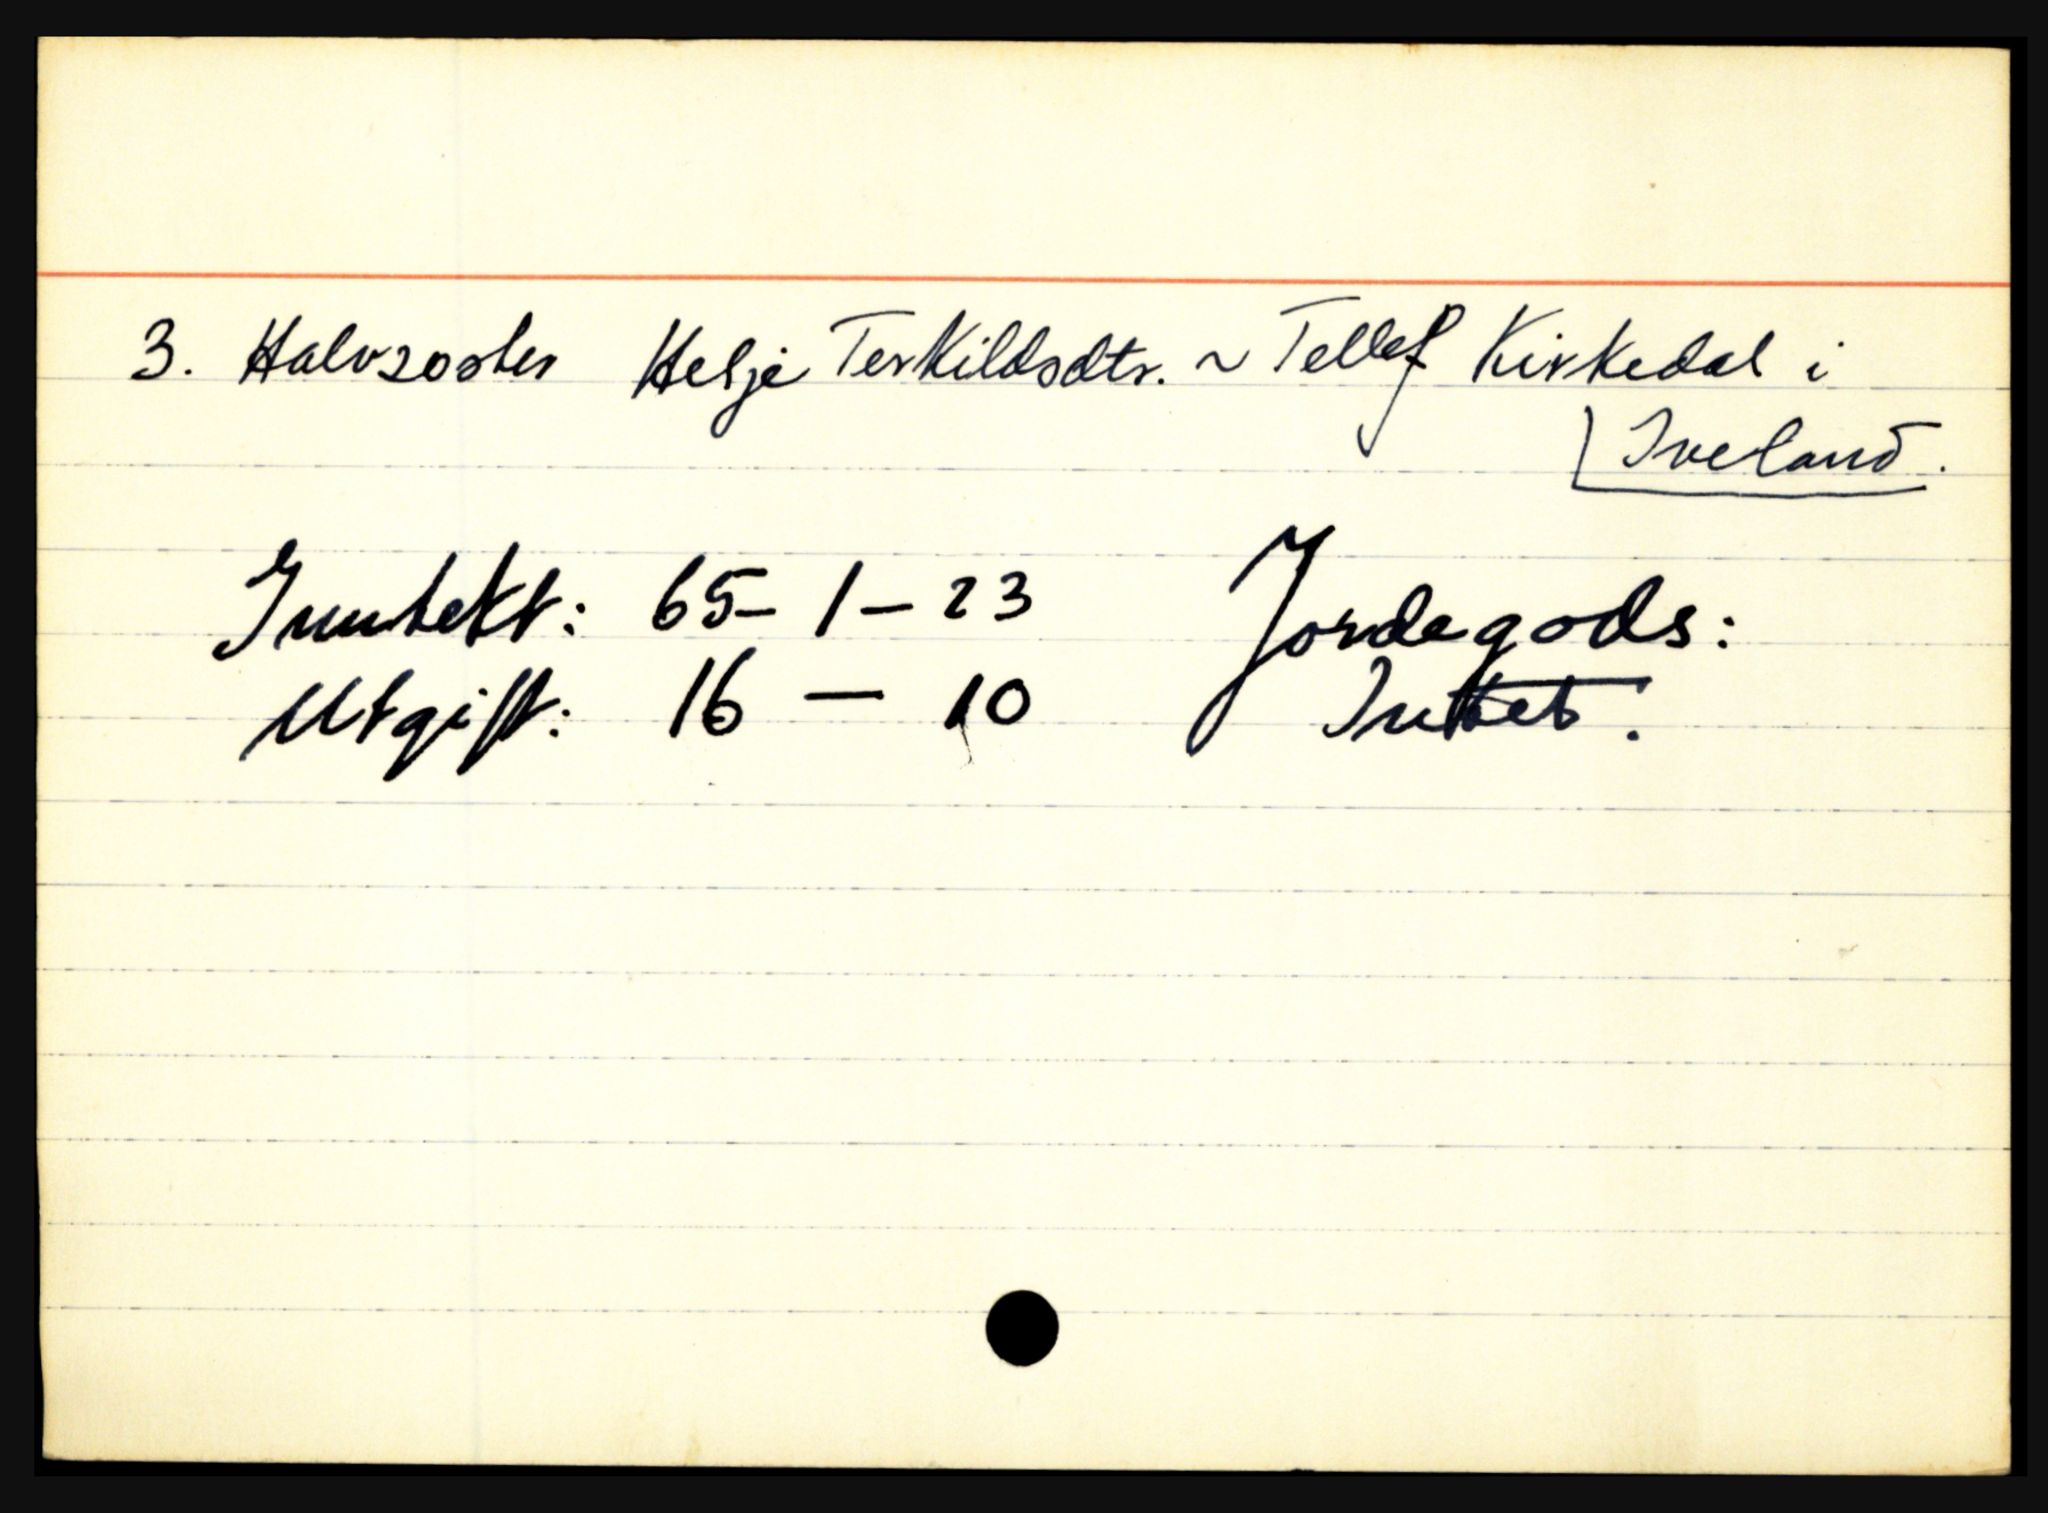 3. Halvsøster Helje Terkildsdtr. ~ Tellef Kirkedal i
Iveland.
Inntekt: 65 - 1 - 23 Jordegods:
Utgift: 16 — 10 Inttet.